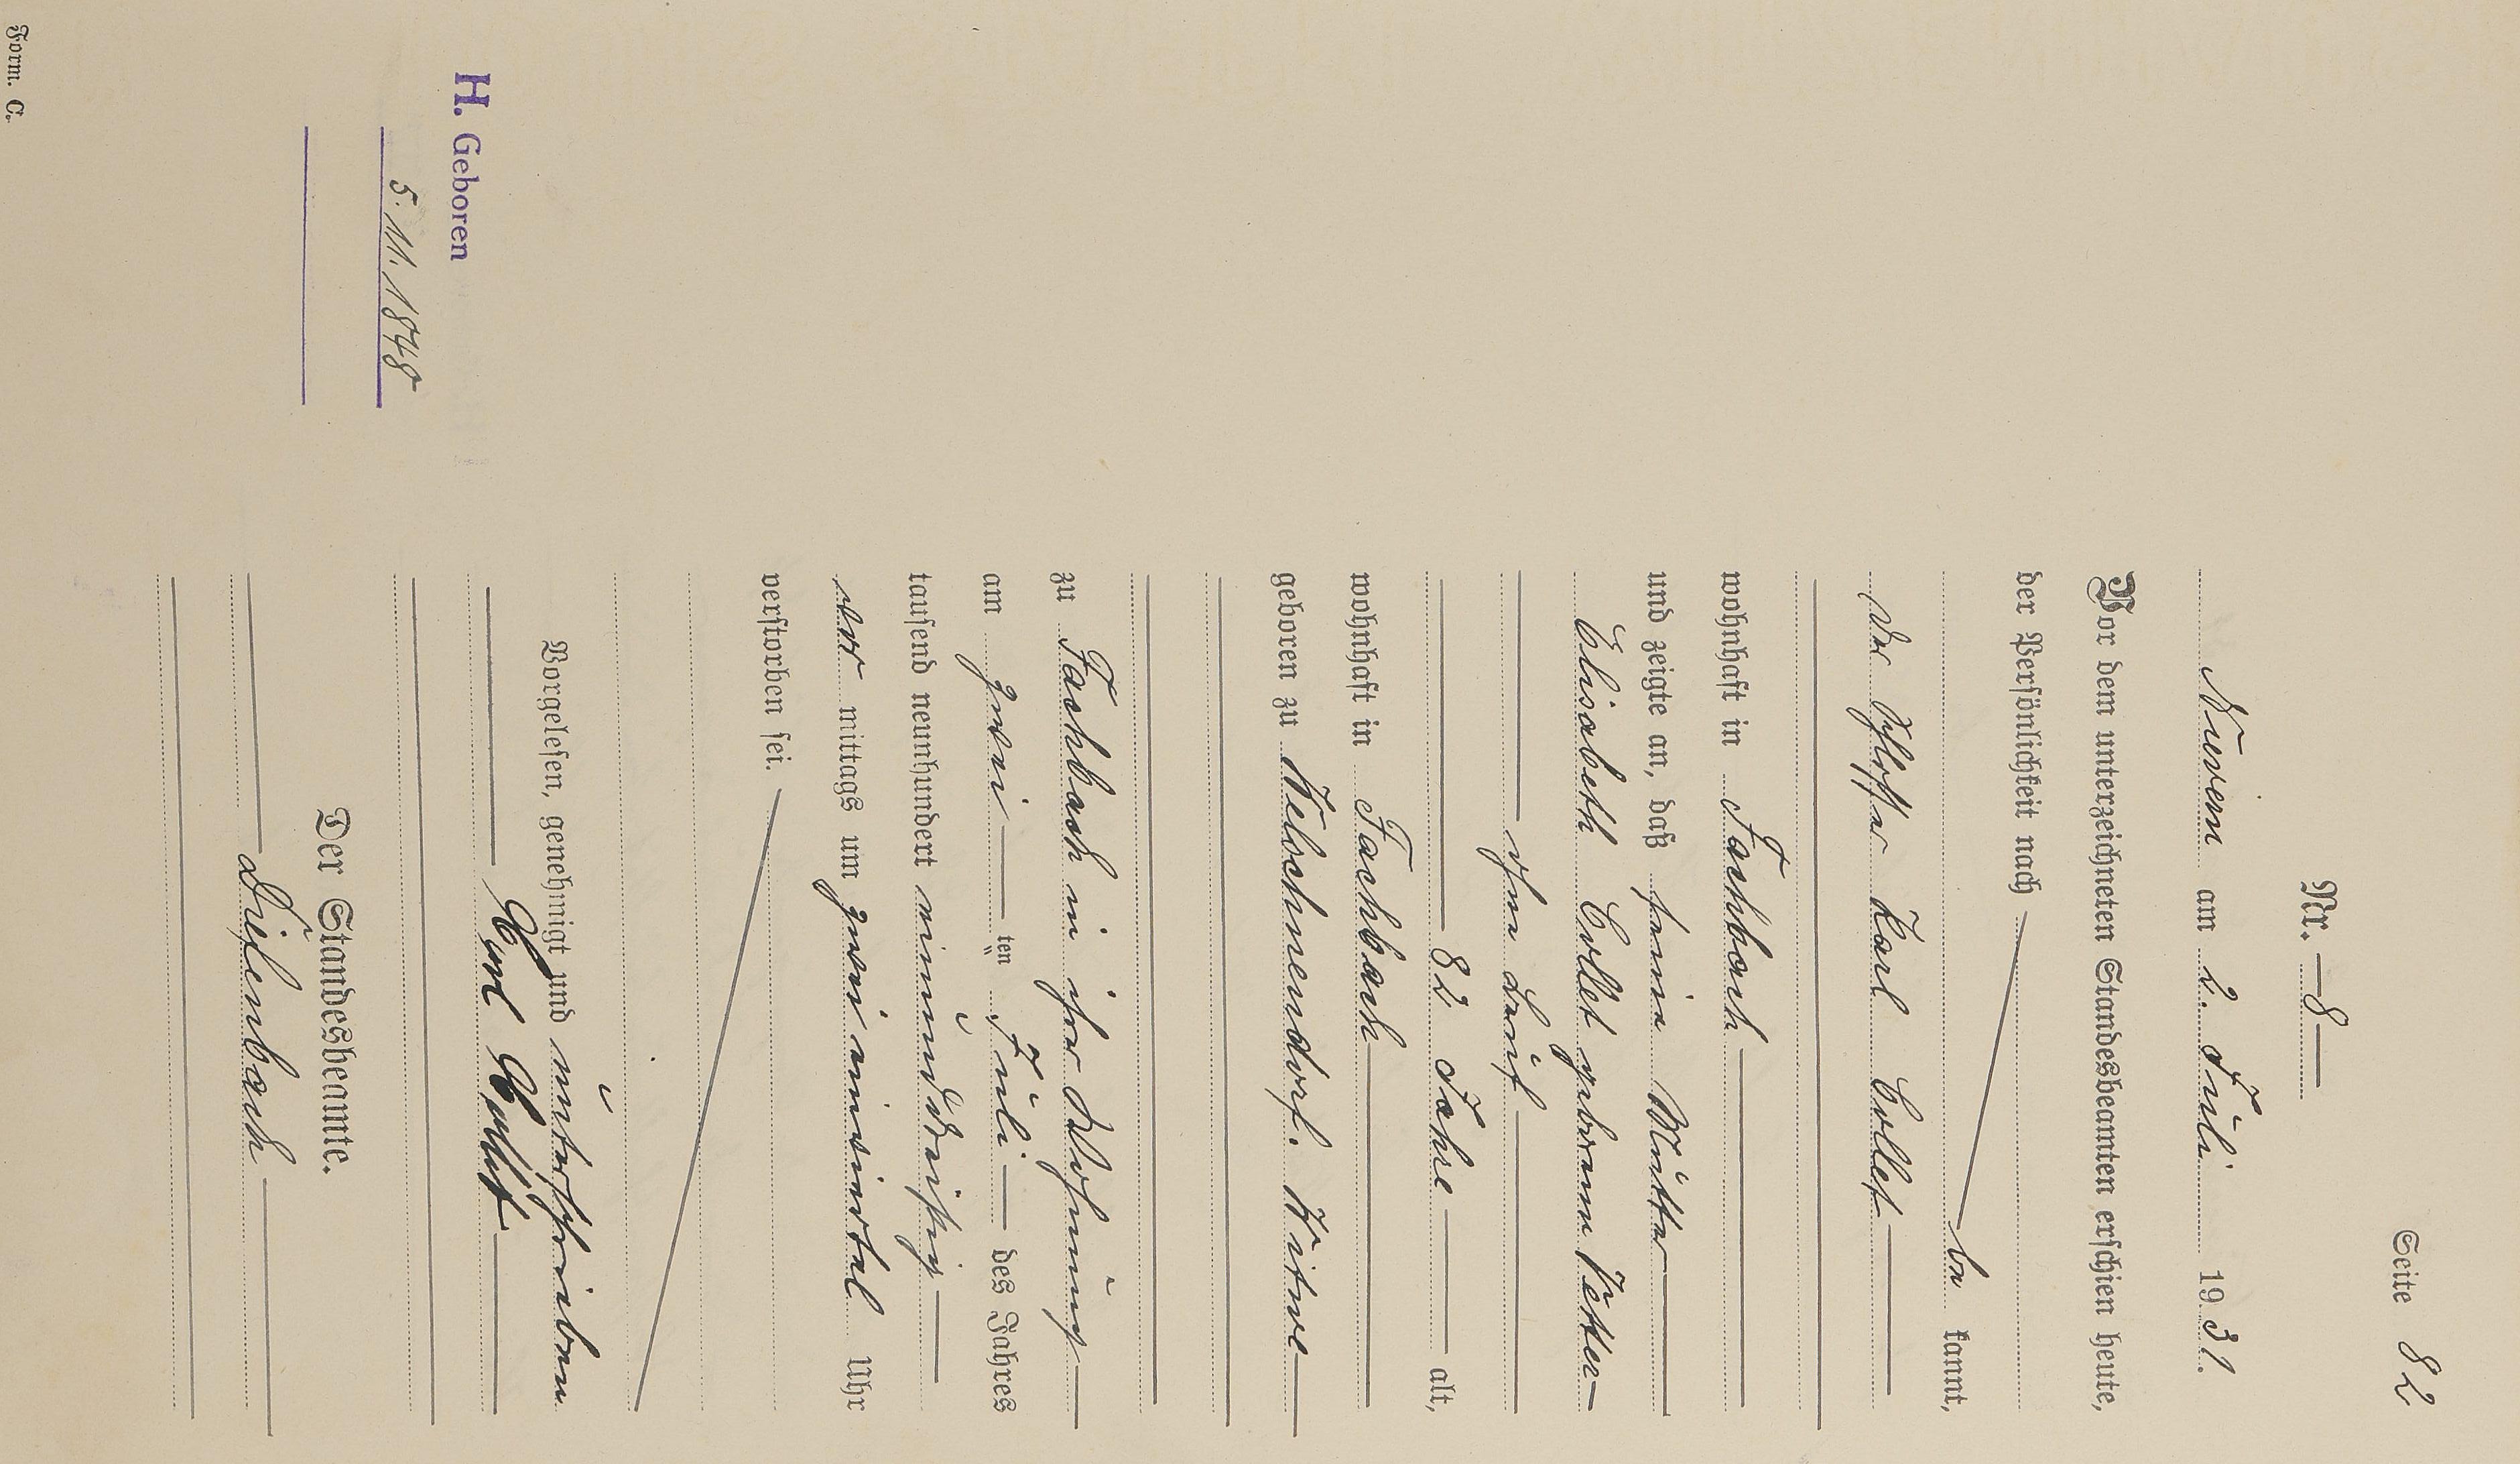 Seite 82
Nr. 8
Nievern am 2. Juli 1931.
Vor dem unterzeichneten Standesbeamten erschien heute,
der Persönlichkeit nach
be kannt,
der Schlosser Karl Collet
wohnhaft in Fachbach
und zeigte an, daß seine Mutter
Elisabeth Collet geborene Vetter
ohne Beruf
82 Jahre alt,
wohnhaft in Fachbach
geboren zu Welschneudorf. Witwe
zu Fachbach in ihrer Wohnung
am zwei ten Juli des Jahres
tausend neunhundert einunddreißig
vor mittags um zwei einviertel Uhr
verstorben sei.
Vorgelesen, genehmigt und unterschrieben
Karl Collet
Der Standesbeamte.
H. Geboren
5. 11. 1848
Form. C.